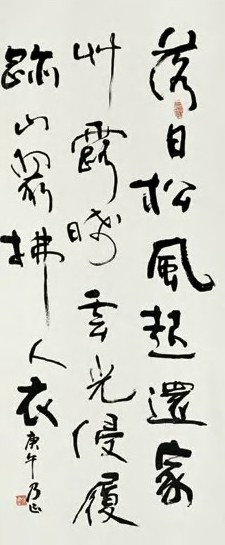 落日松風起還家
艸露晞云光侵履
跡山翠拂人衣
庚午乃正